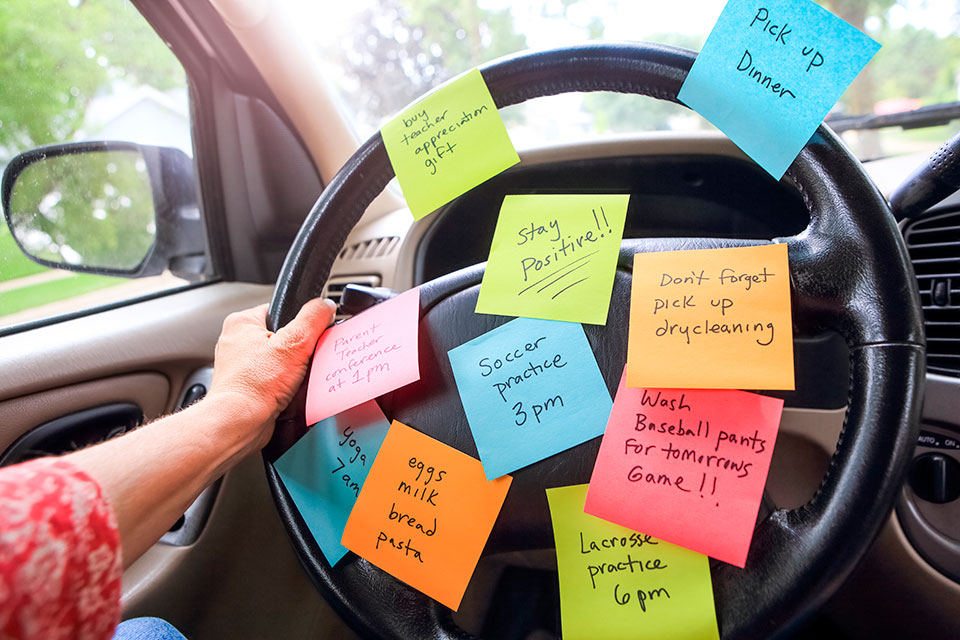 Pick up
Dinner
buy
teacher
appreciation
gift
Stay
Positive!!
Don't forget
pick up
drycleaning
Parent
Teacher
conference
at 1pm
Soccer
practice
3pm
Wash
Baseball pants
for tomorrows
Game!!
yoga
7am
eggs
milk
bread
pasta
Lacrosse
practice
6pm
AUTO
ON